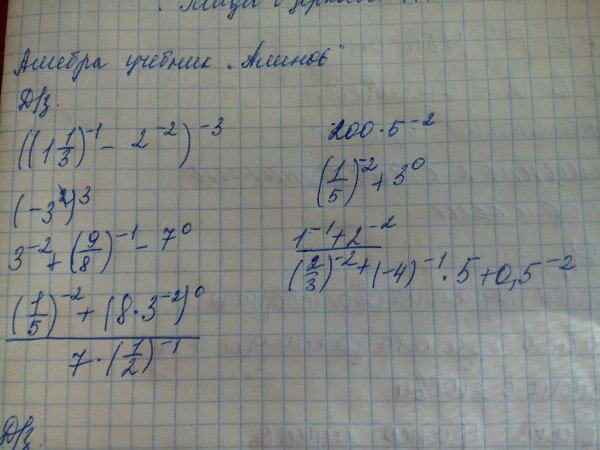 Алгебра учебник „Алимов"
Д/з.
((1 1/3)^-1 - 2^-2)^-3
(-3^2)^3
3^-2 + (9/8)^-1 - 7^0
((1/5)^-2 + (8·3^-2)^0) / (7·(1/2)^-1)
200·5^-2
(1/5)^-2 + 3^0
(1^-1 + 2^-2) / ((2/3)^-2 + (-4)^-1 · 5 + 0,5^-2
Д/з.